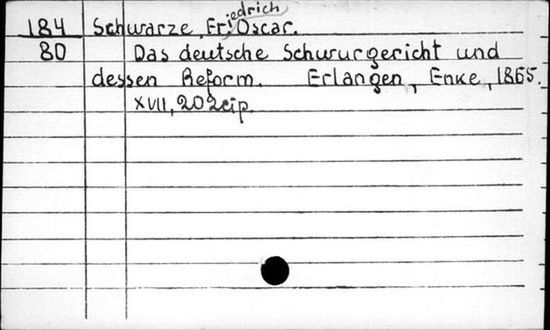 184 Schwarze, Friedrich Oscar.
80 Das deutsche Schwurgericht und
dessen Reform. Erlangen, Enke, 1865.
XVII, 202 p.